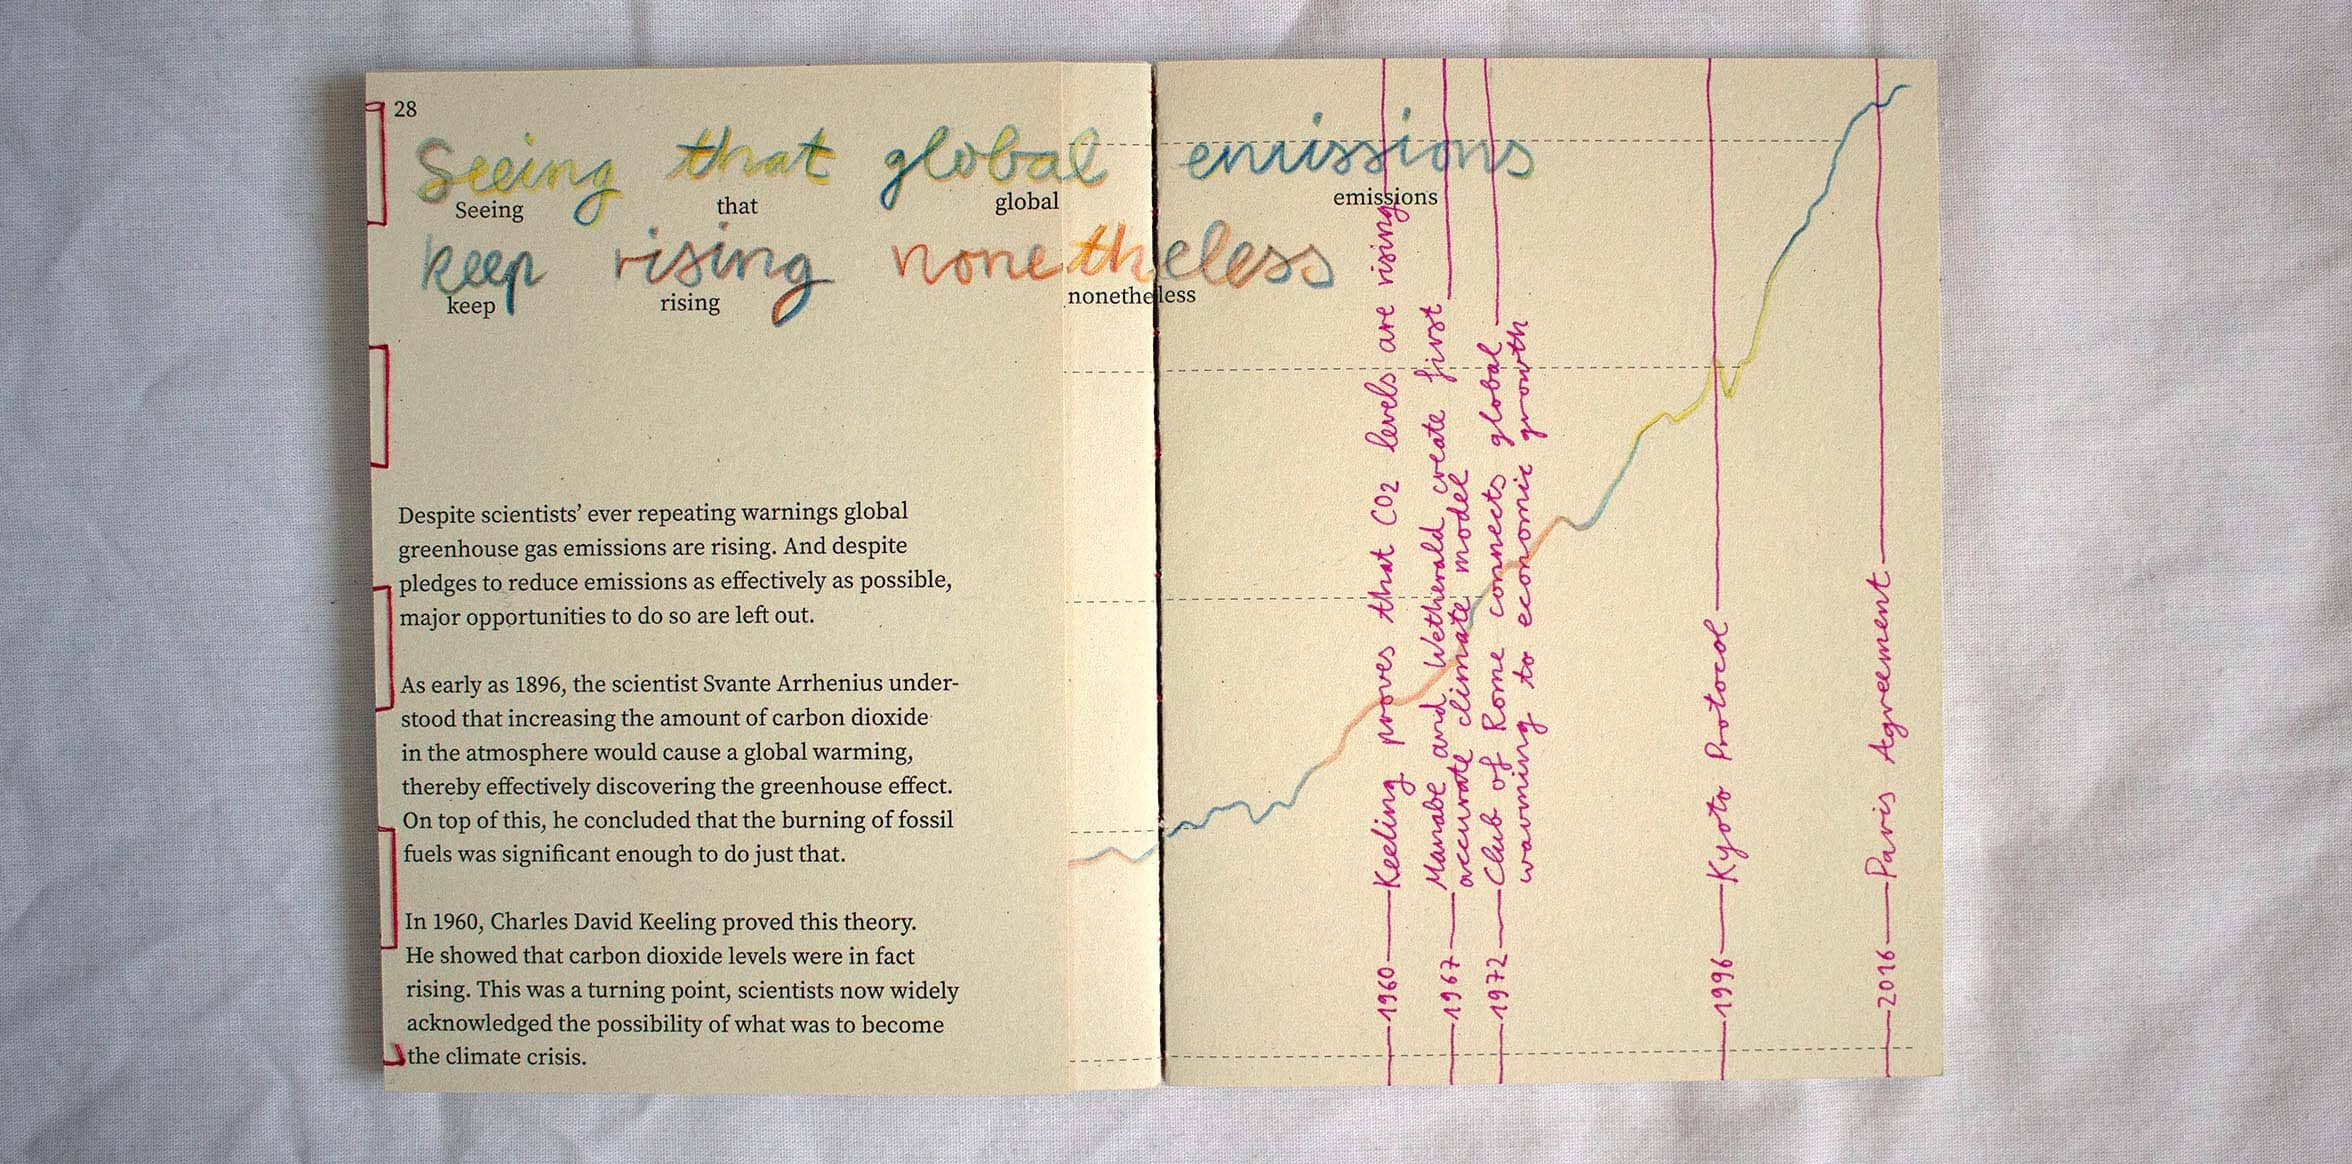 28
Seeing that global emissions
Seeing that global emissions
keep rising nonetheless
keep rising nonetheless
Despite scientists’ ever repeating warnings global
greenhouse gas emissions are rising. And despite
pledges to reduce emissions as effectively as possible,
major opportunities to do so are left out.
As early as 1896, the scientist Svante Arrhenius under-
stood that increasing the amount of carbon dioxide
in the atmosphere would cause a global warming,
thereby effectively discovering the greenhouse effect.
On top of this, he concluded that the burning of fossil
fuels was significant enough to do just that.
In 1960, Charles David Keeling proved this theory.
He showed that carbon dioxide levels were in fact
rising. This was a turning point, scientists now widely
acknowledged the possibility of what was to become
the climate crisis.
1960 Keeling proves that CO2 levels are rising
1967 Manabe and Wetherald create first
accurate climate model
1972 Club of Rome connects global
warming to economic growth
1996 Kyoto Protocol
2016 Paris Agreement